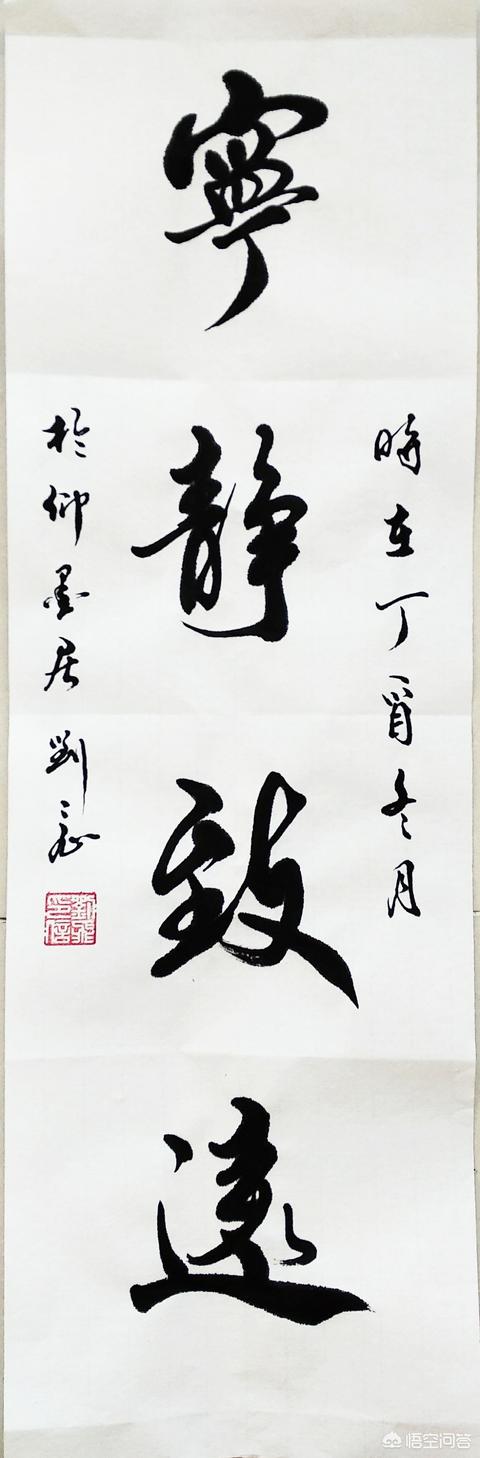 時在丁酉冬月
寧静致遠
於仰墨居劉
悟空问答